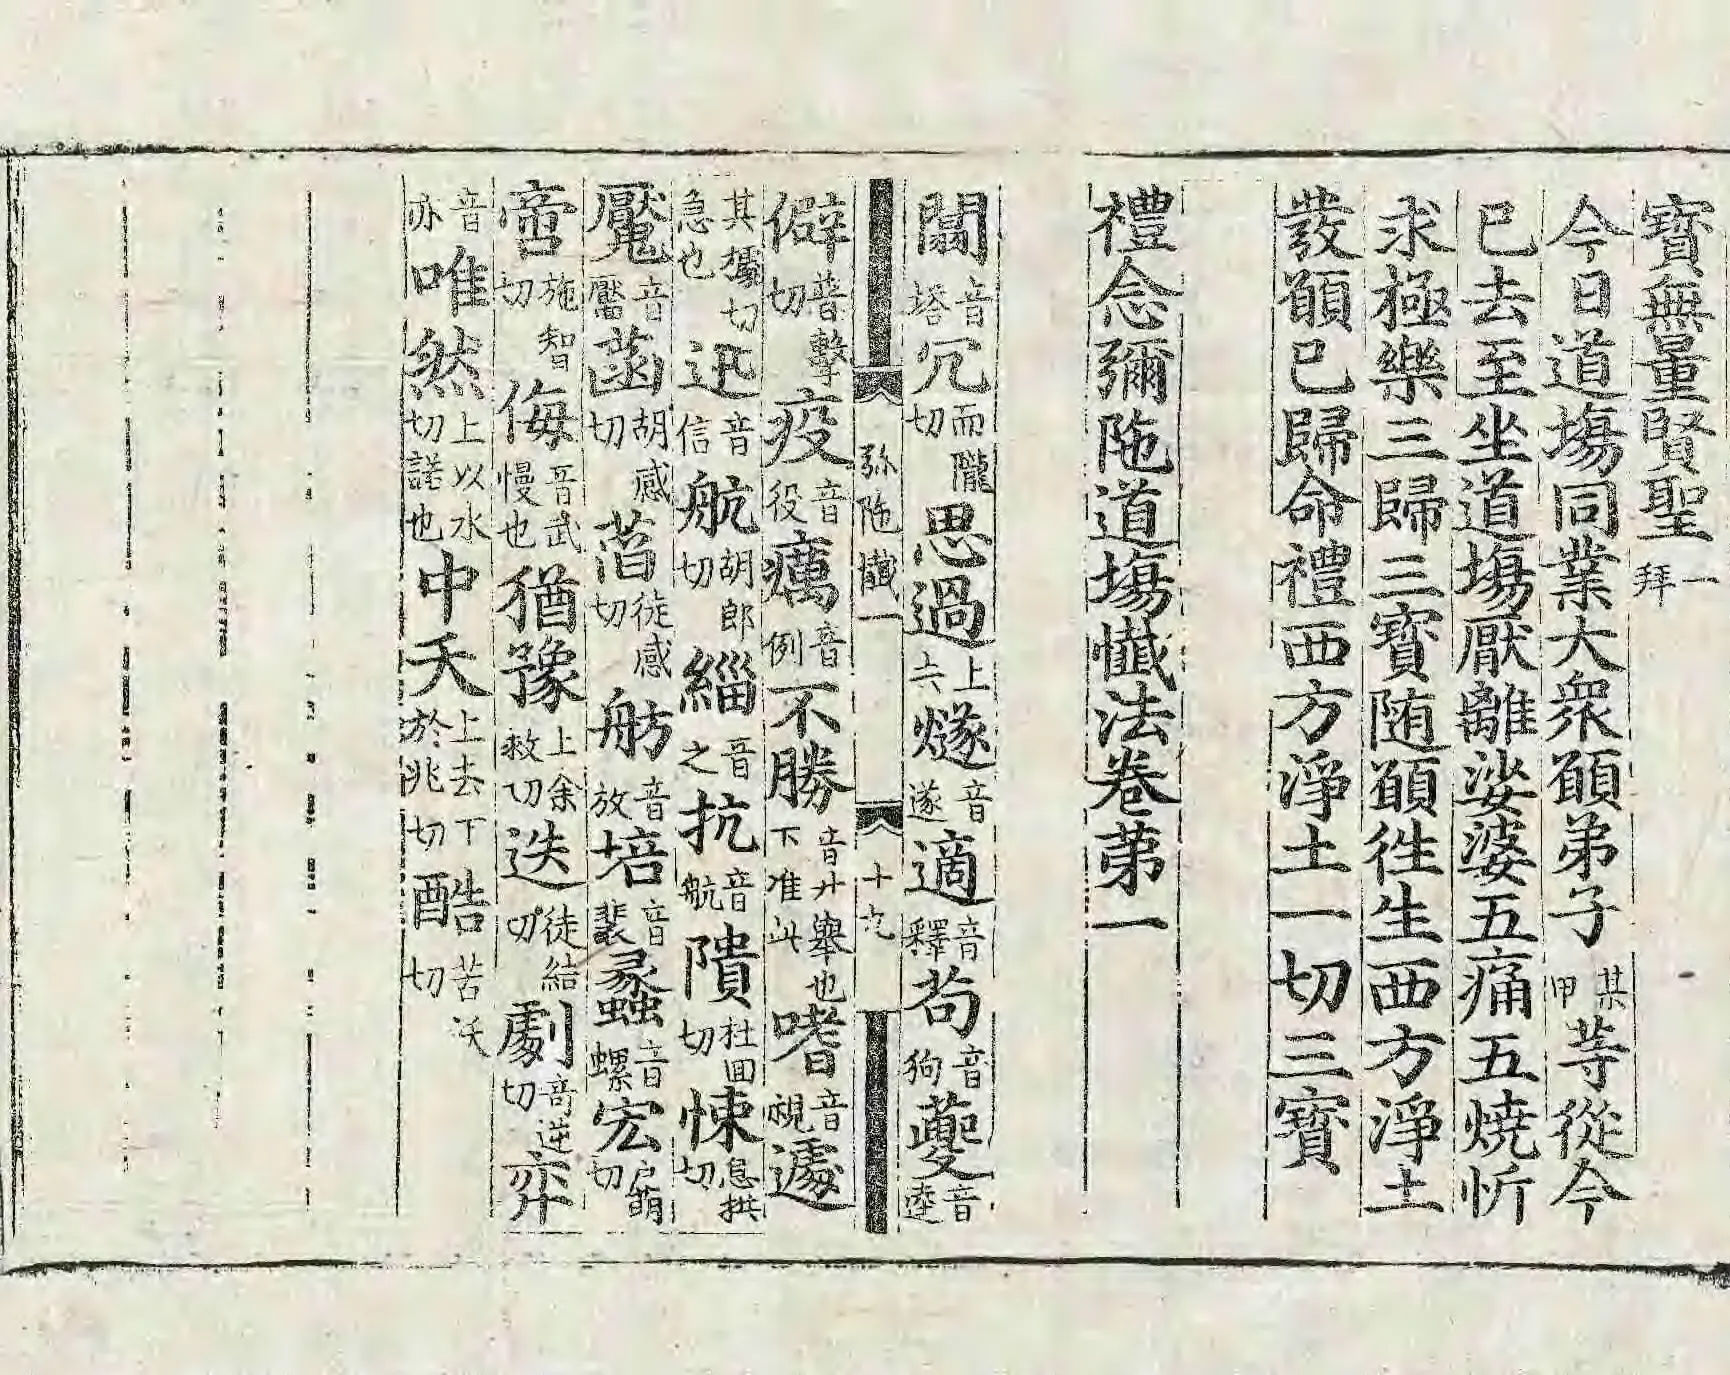 寶無量賢聖一拜
今日道塲同業大衆願弟子某甲等從今
已去至坐道塲厭離娑婆五痛五燒忻
求極樂三歸三寶随願徃生西方淨土
發願已歸命禮西方淨土一切三寶
禮念彌陁道塲懺法卷苐一
闒音塔冗而隴切思過上六燧音遂適音釋苟音狗蘷音逵
弥陁懺一 十九
僻普擊切疫音役癘音例不勝音升舉也下准此嗜音視遽
其據切急也迅音信航胡郎切緇音之抗音航隤杜回切悚息拱切
魘音黶菡胡感切萏徒感切舫音放培音裴蠡音螺宏户萌切
啻施智切侮音武慢也猶豫上余救切迭徒結切劇竒逆切弈
音亦唯然上以水切諾也中夭上去下於兆切酷苦沃切